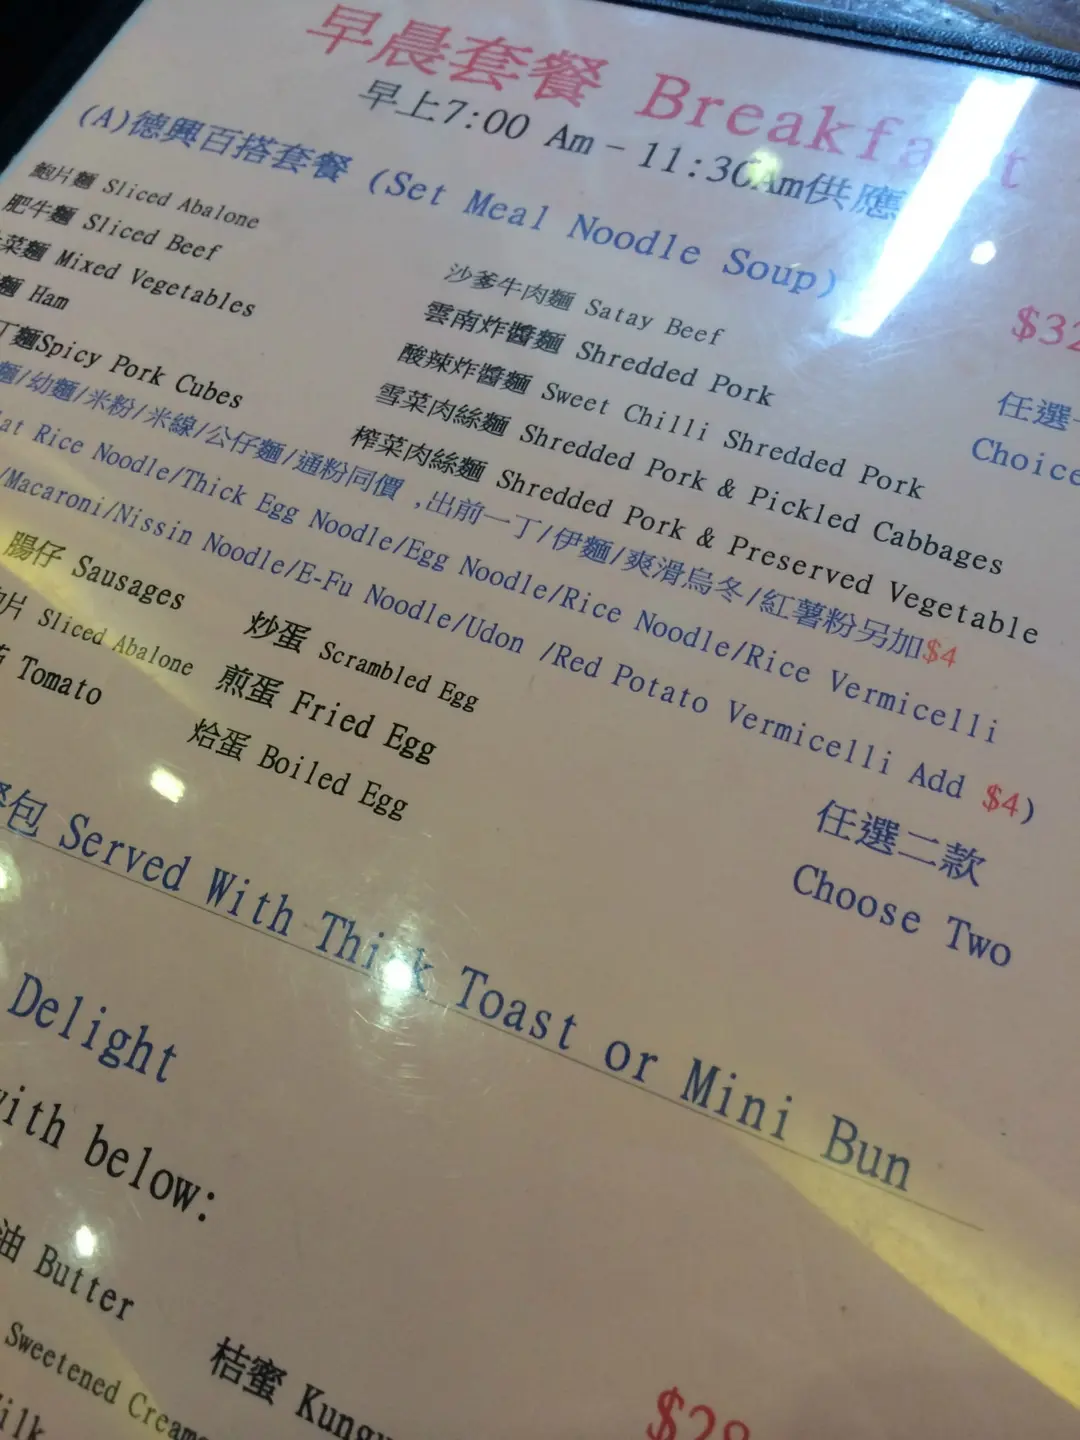 早晨套餐 Breakfast
早上7:00 Am－11:30Am供應
(A)德興百搭套餐 (Set Meal Noodle Soup) $32
鮑片麵 Sliced Abalone 沙爹牛肉麵 Satay Beef 任選
肥牛麵 Sliced Beef 雲南炸醬麵 Shredded Pork Choice
菜麵 Mixed Vegetables 酸辣炸醬麵 Sweet Chilli Shredded Pork
麵 Ham 雪菜肉絲麵 Shredded Pork & Pickled Cabbages
丁麵Spicy Pork Cubes 榨菜肉絲麵 Shredded Pork & Preserved Vegetable
麵/幼麵/米粉/米線/公仔麵/通粉同價 ,出前一丁/伊麵/爽滑烏冬/紅薯粉另加$4
Rice Noodle/Thick Egg Noodle/Egg Noodle/Rice Noodle/Rice Vermicelli
/Macaroni/Nissin Noodle/E-Fu Noodle/Udon /Red Potato Vermicelli Add $4)
腸仔 Sausages 炒蛋 Scrambled Egg 任選二款
片 Sliced Abalone 煎蛋 Fried Egg Choose Two
Tomato 烚蛋 Boiled Egg
包 Served With Thick Toast or Mini Bun
Delight
with below:
油 Butter 桔蜜 $28
Sweetened